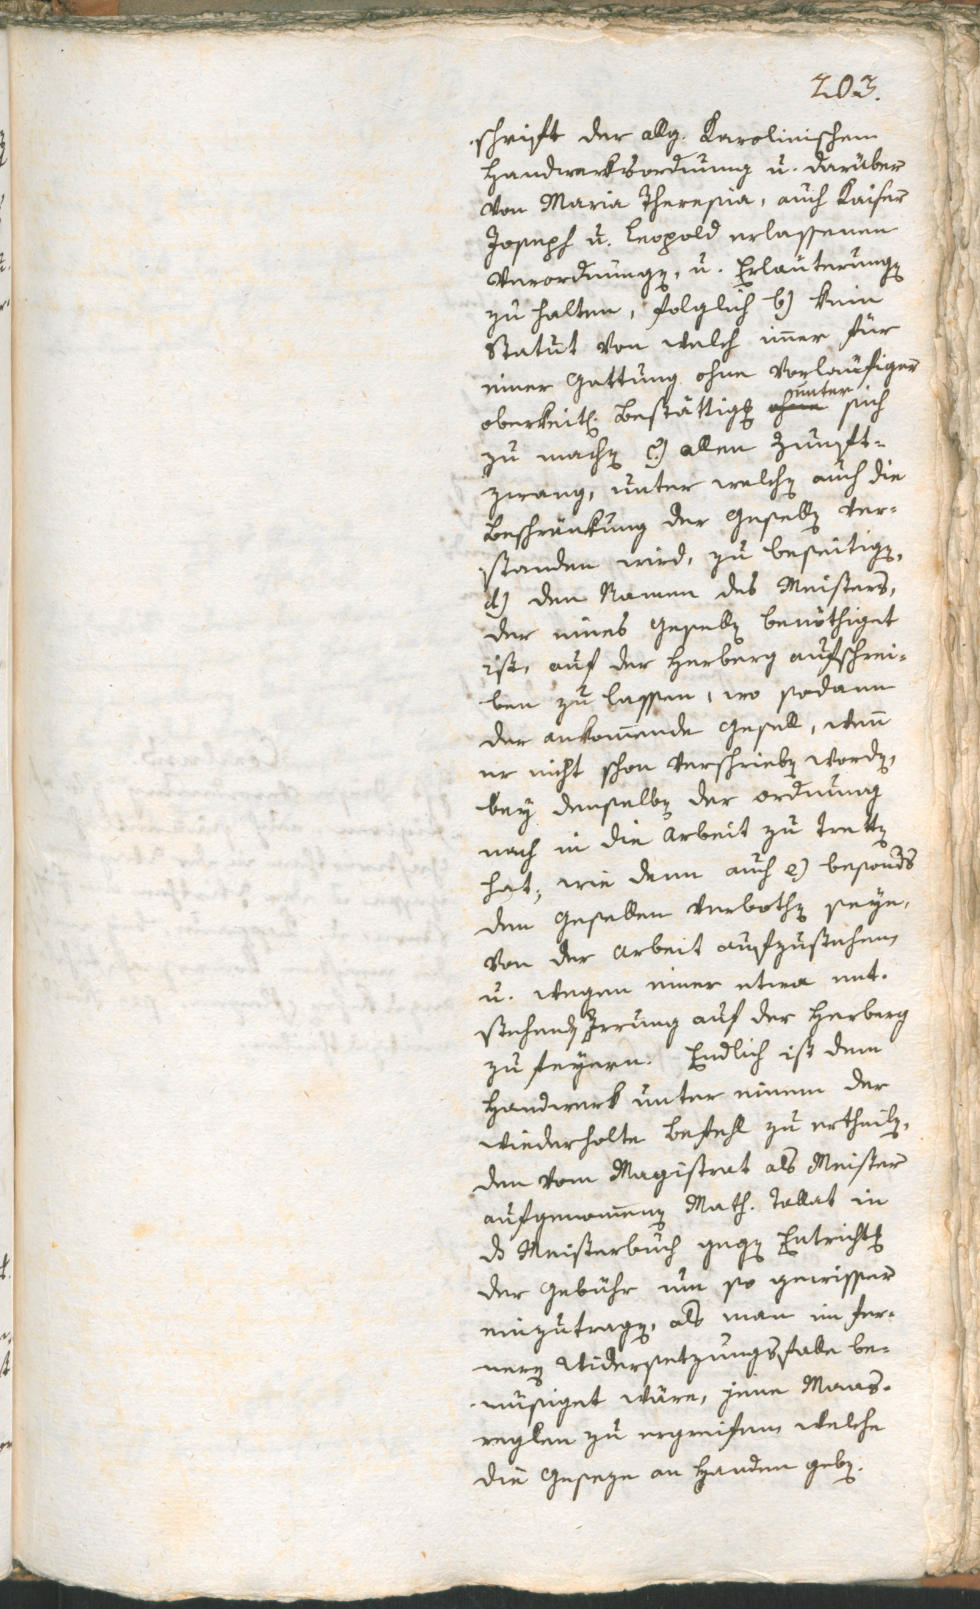 203.
schrift der allg. Karolinischen
Handwerksordnung u. darüber
von Maria Theresia, auch Kaiser
Joseph u. Leopold erlassenen
Verordnung, u. Erläuterung
zu halten, folglich b) kein
Statut von welch im̄er für
einer Gattung ohne vorläufiger
oberkeitl. Bestättig ohne unter sich
zu mach c) allen Zunft-
zwang, unter welch auch die
Beschränkung der Gesell ver-
standen wird, zu beseitig,
d) den Namen des Meisters,
der eines Gesell benöthiget
ist, auf der Herberg aufschrei-
ben zu lassen, wo sodann
der ankom̄ende Gesell, wen̄
er nicht schon verschrieb word,
bey denselb der Ordnung
nach in die Arbeit zu trett
hat, wie denn auch e) besonds
den Gesellen verboth seye,
von der Arbeit aufzustehen,
u. wegen einer etwa ent-
stehend Irrung auf der Herberg
zu feyern. Endlich ist dem
Handwerk unter einem der
wiederholte Befehl zu ertheil,
den vom Magistrat als Meister
aufgenom̄en Math. Tallat in
ds Meisterbuch geg Entricht
der Gebühr um so gewisser
einzutrag, als man im fer-
nern Widersetzungsfalle be-
müßiget wäre, jene Maas-
reglen zu ergreifen, welche
die Geseze an Handen geb.